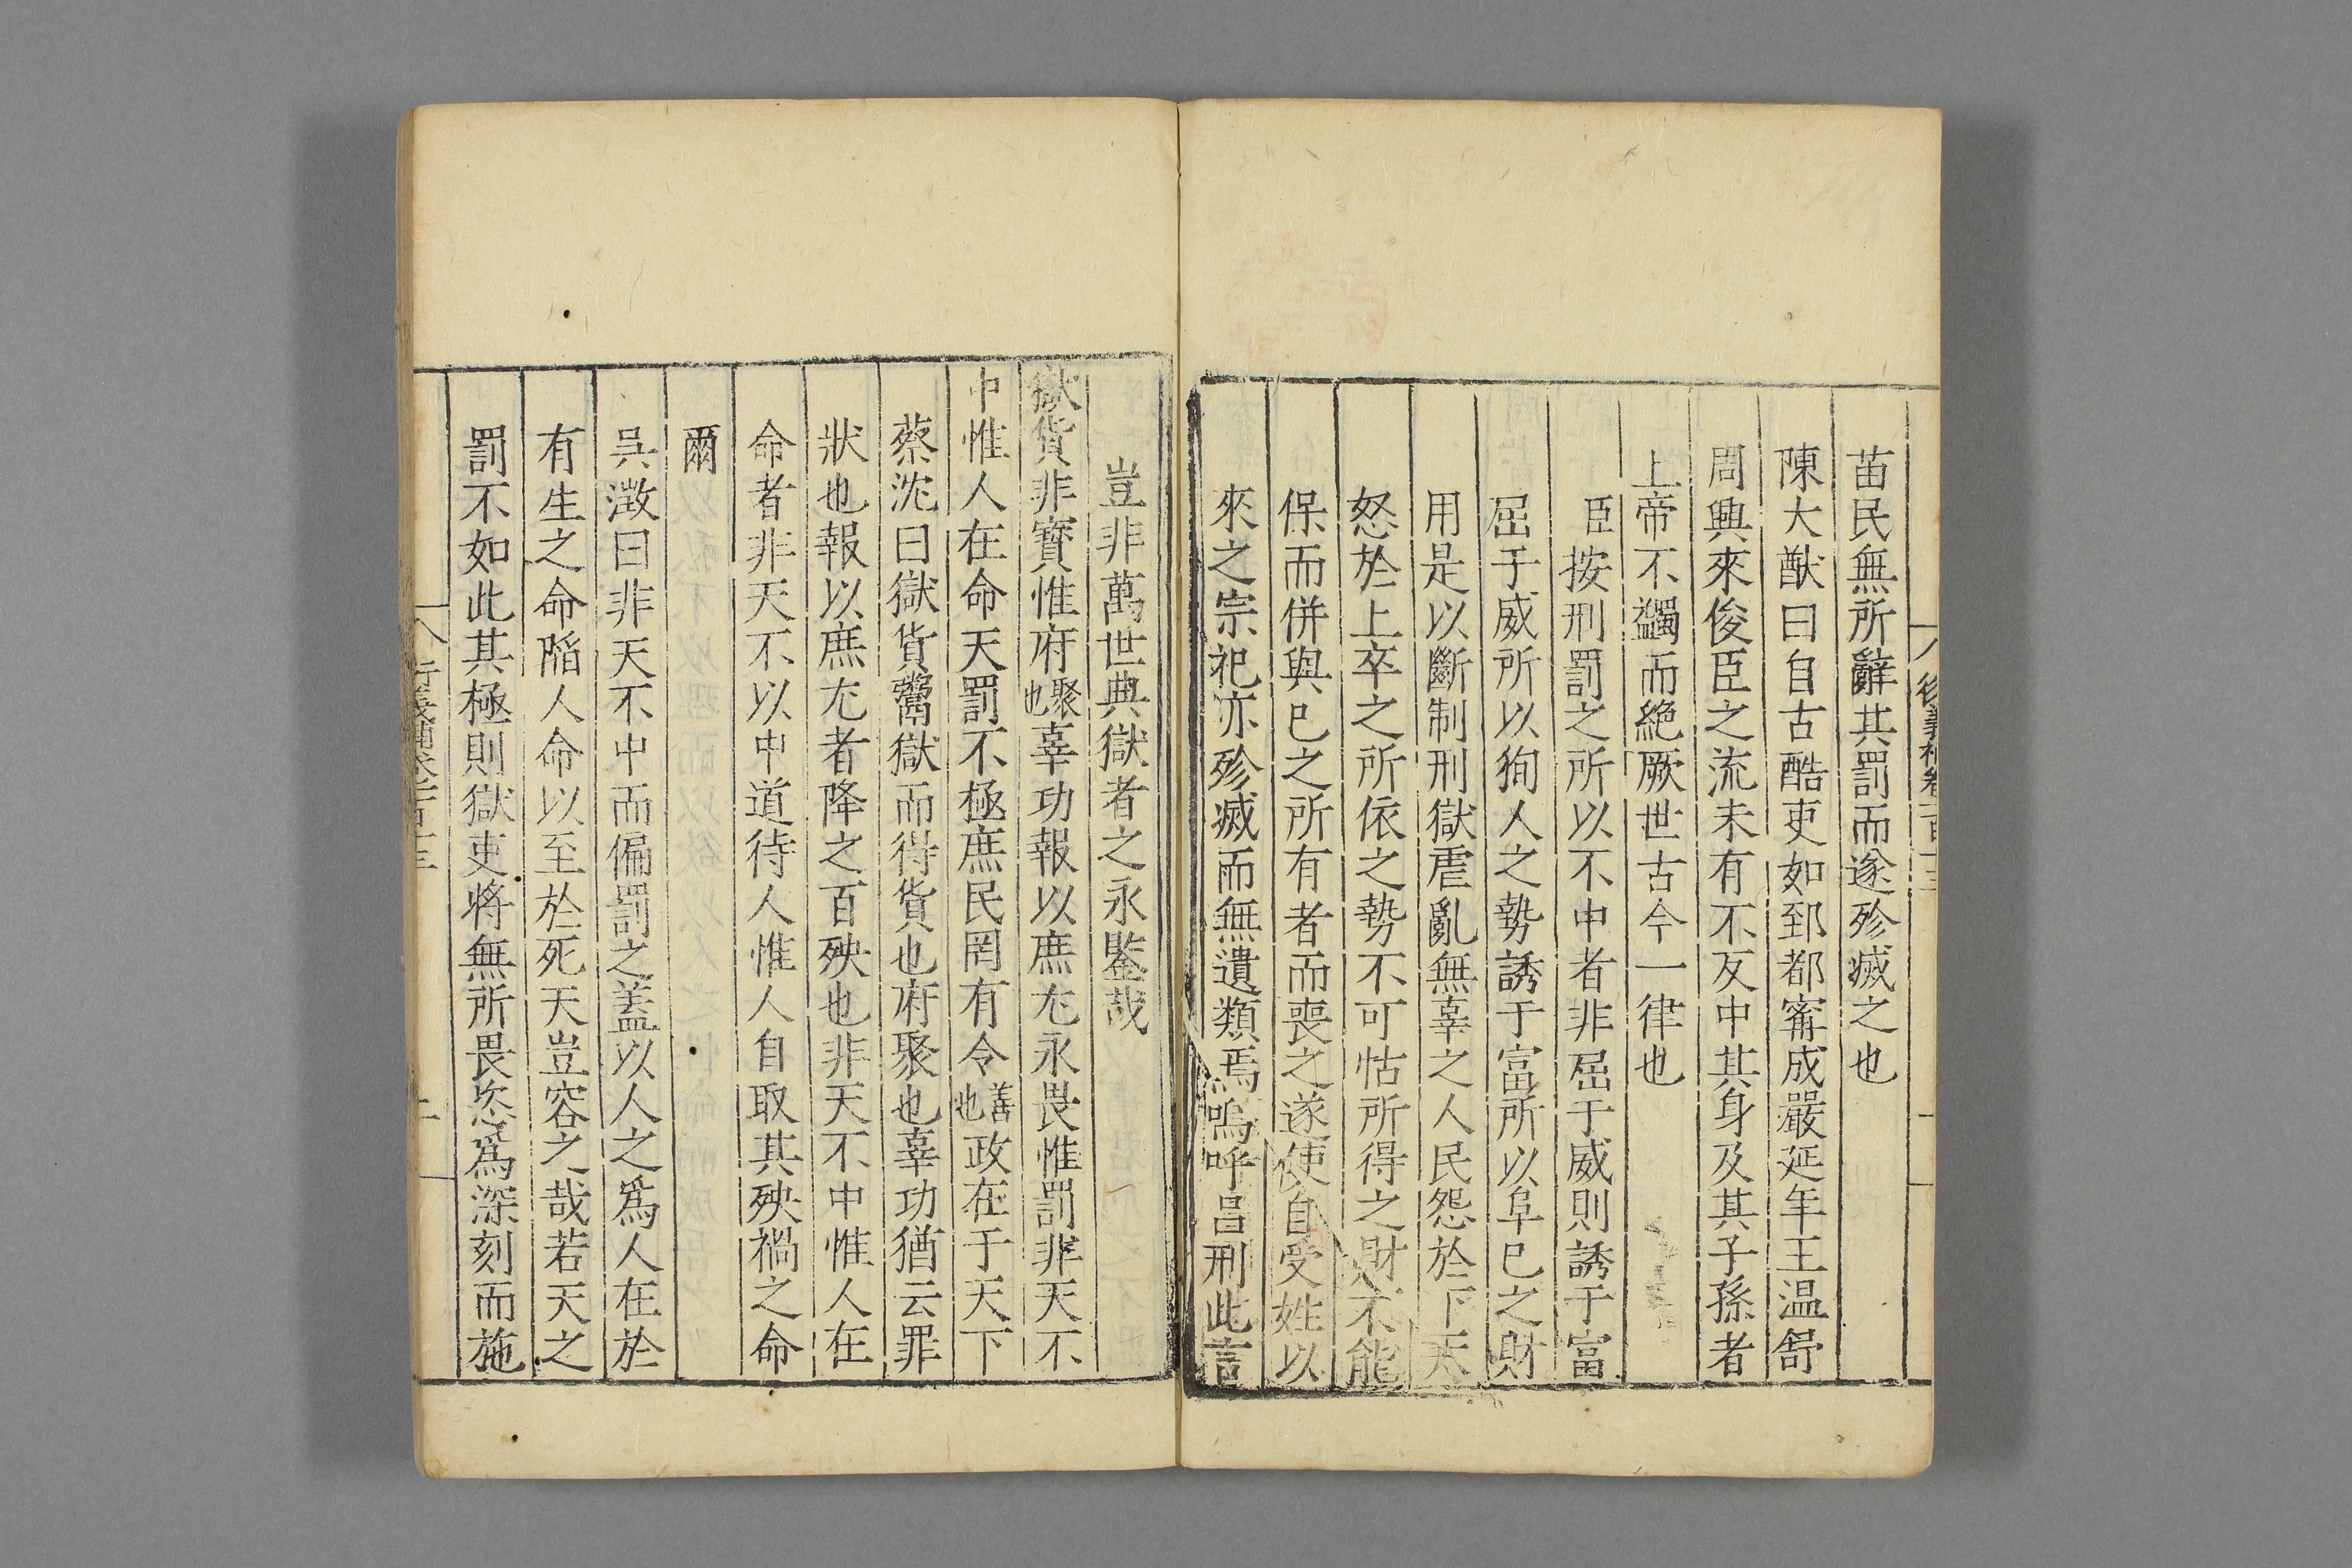 苗民無所辭其罰而遂殄滅之也
陳大猷曰自古酷吏如郅都甯成嚴延年王温舒
周興來俊臣之流未有不反中其身及其子孫者
上帝不蠲而絶厥世古今一律也
臣按刑罰之所以不中者非屈于威則誘于富
屈于威所以狥人之勢誘于富所以阜已之財
用是以斷制刑獄虐亂無辜之人民怨於下天
怒於上卒之所依之勢不可怙所得之財不能
保而併與已之所有者而喪之遂使自受姓以
來之宗祀亦殄滅而無遺類焉嗚呼呂刑此言
豈非萬世典獄者之永鑒哉
獄貨非寳惟府聚也辜功報以庶尤永畏惟罰非天不
中惟人在命天罰不極庶民罔有令善也政在于天下
蔡沈曰獄貨鬻獄而得貨也府聚也辜功猶云罪
狀也報以庶尤者降之百殃也非天不中惟人在
命者非天不以中道待人惟人自取其殃禍之命
爾
吳澂曰非天不中而偏罰之蓋以人之爲人在於
有生之命陷人命以至於死天豈容之哉若天之
罰不如此其極則獄吏將無所畏恣爲深刻而施